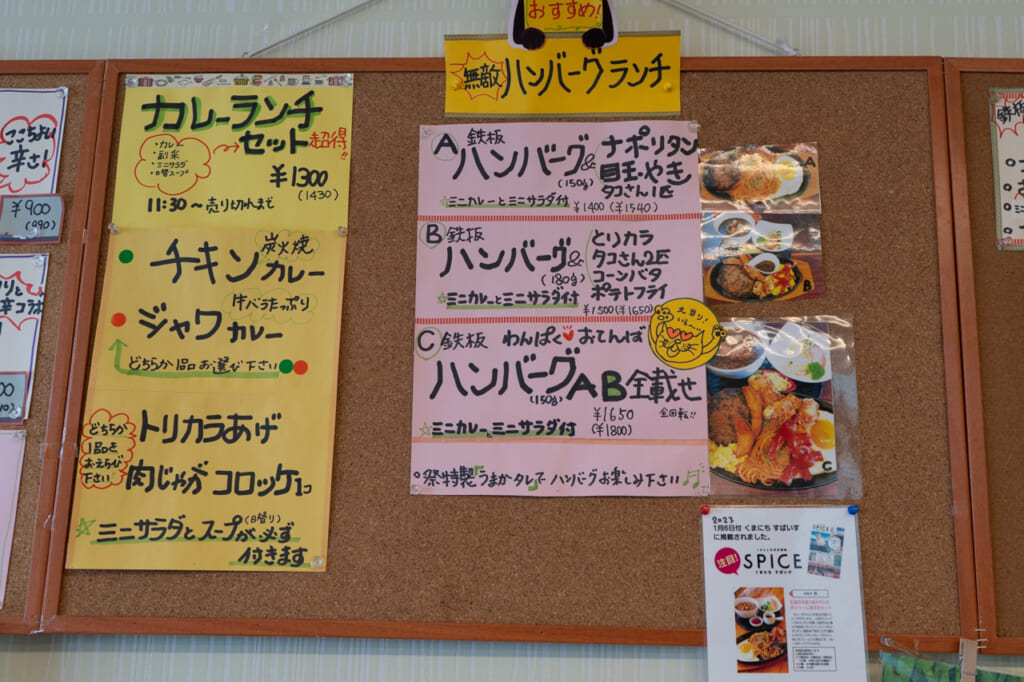 ここちよい
辛さ!
¥900
(990)
カレーランチ
セット 超得!!
・カレー
・副菜
・ミニサラダ
・日替スープ
¥1300
(1430)
11:30～売り切れまで
炭火焼
チキンカレー
牛バラたっぷり
ジャワカレー
どちらか1品お選び下さい
どちらか
1品を
おえらび
下さい
トリカラあげ
肉じゃがコロッケ1コ
☆ミニサラダとスープ(日替り)が必ず
付きます
おすすめ!
無敵 ハンバーグランチ
A 鉄板
ハンバーグ&
(150g)
ナポリタン
目玉やき
タコさん1匹
☆ミニカレーとミニサラダ付
¥1400 (¥1540)
B 鉄板
ハンバーグ&
(180g)
とりカラ
タコさん2匹
コーンバタ
ポテトフライ
☆ミニカレーとミニサラダ付
¥1500 (¥1650)
大当り!
C 鉄板 わんぱく♥おてんば
ハンバーグAB全載せ
(150g)
¥1650
(¥1800)
全回転!!
☆ミニカレーとミニサラダ付
○祭特製♪うまかタレ♪で ハンバーグお楽しみ下さい♫
A
B
C
2023
1月6日付 くまにち すぱいす
に掲載されました。
注目!
SPICE
くまにち すぱいす
SPICE
鉄板